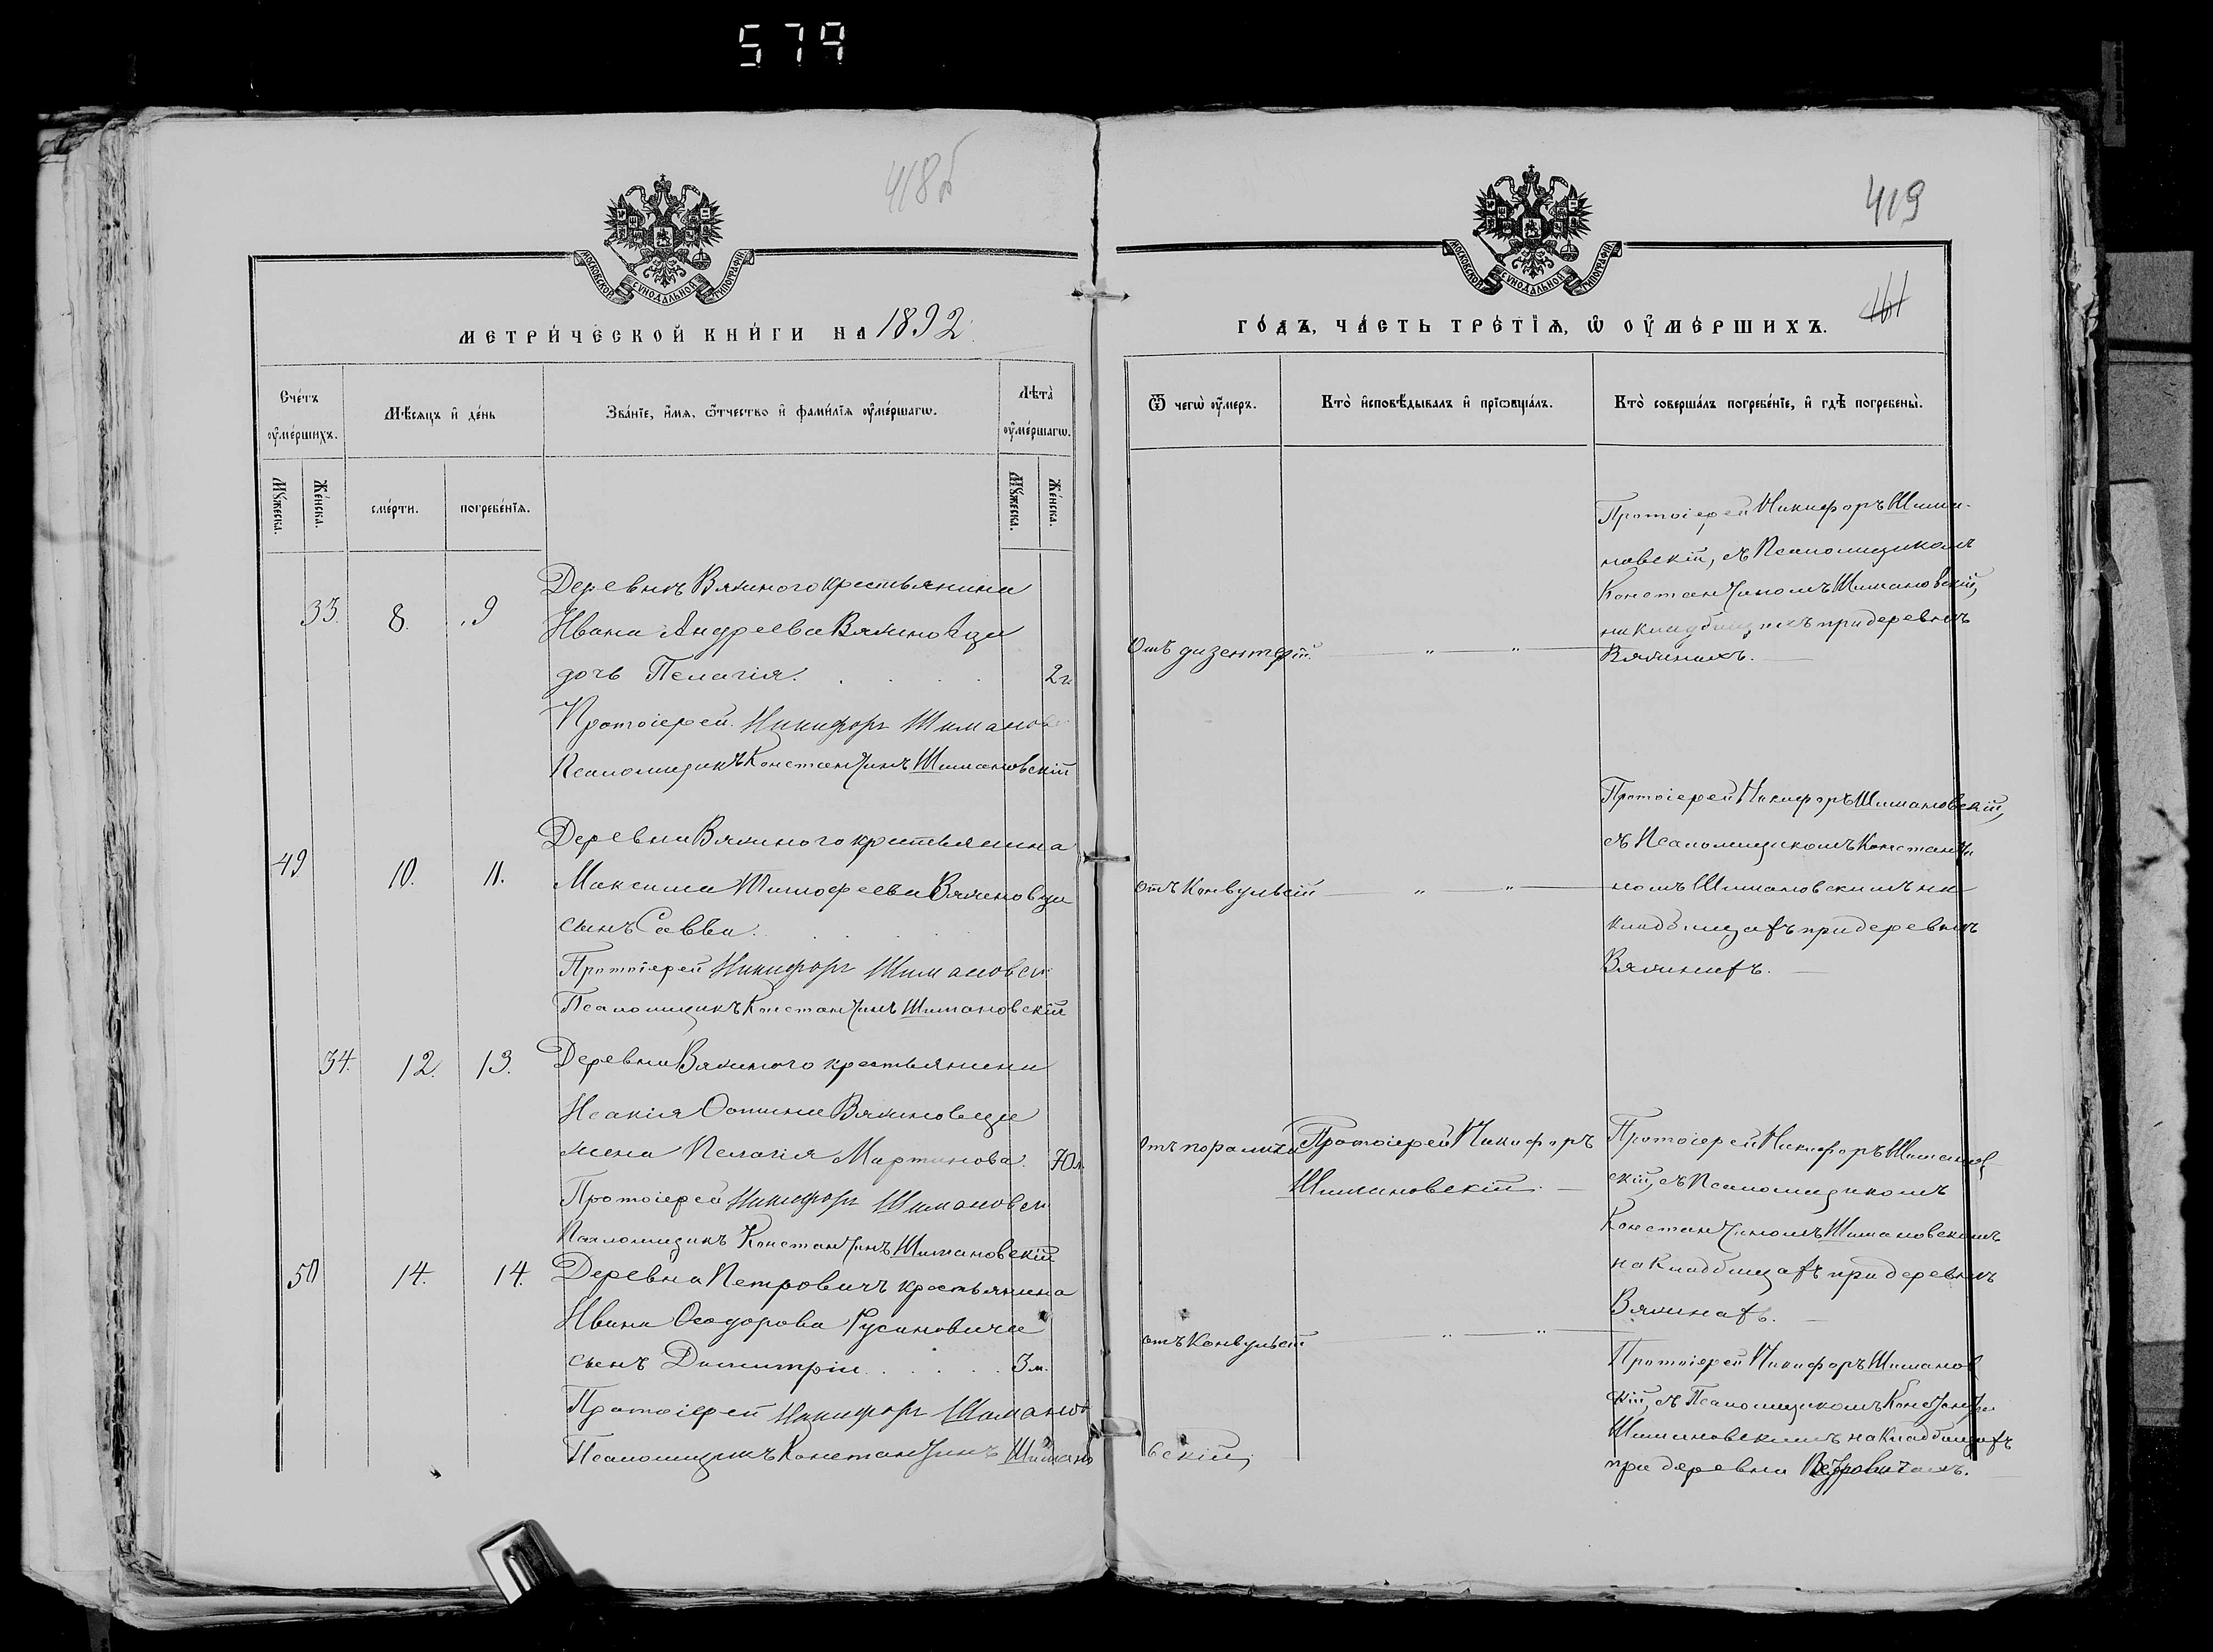 579
418б
МОСКОВСКОЙ СѴНОДАЛЬНОЙ ТИПОГРАФІИ
МЕТРИ́ЧЕСКОЙ КНИ́ГИ НА 1892
Сче́тъ ᲂу҆ме́ршихъ.
Мѣ́сѧцъ и҆ де́нь
Зва́нїе, и҆́мѧ, ѿтчество и҆ фами́лїѧ ᲂу҆ме́ршагѡ.
Лѣта̀ ᲂу҆ме́ршагѡ.
Мꙋ́жеска.
Же́нска.
сме́рти.
погребе́нїѧ.
Мꙋ́жеска.
Же́нска.
33. 8. 9
Деревнѣ Вяжного крестьянина
Ивана Андреева Вяжновца
дочь Пелагія. 2 г.
Протоіерей Никифоръ Шиманов
Псаломщикъ Константинъ Шимановскій
49 10. 11.
Деревни Вяжного крестьянина
Максима Тимофеева Вяжновца
сынъ Савва.
Протоіерей Никифоръ Шимановск
Псаломщикъ Константинъ Шимановскій
34. 12. 13.
Деревни Вяжного крестьянина
Исакія Вяжновца
жена Пелагія Мартинова. 70 л.
Протоіерей Никифоръ Шимановск
Псаломщикъ Константинъ Шимановскій
50 14. 14.
Деревни Петровичъ крестьянина
Ивана Ѳеодорова Русиновича
сынъ Димитрій. 3 м.
Протоіерей Никифоръ Шиманов
Псаломщикъ Константинъ Шимано
419
МОСКОВСКОЙ СѴНОДАЛЬНОЙ ТИПОГРАФІИ
ГО́ДЪ, ЧА́СТЬ ТРЕ́ТЇѦ, Ѡ҆ ОУ҆МЕ́РШИХЪ.
Ѿ чегѡ̀ ᲂу҆́меръ.
Кто̀ и҆сповѣ́дывалъ и҆ прїѡбща́лъ.
Кто̀ соверша́лъ погребе́нїе, и҆ гдѣ̀ погребены̀.
Отъ дизентеріи
Протоіерей Никифоръ Шима-
новскій, съ Псаломщикомъ
Константиномъ Шимановскій,
на кладбищахъ при деревнѣ
Вяжнахъ.
отъ Конвульсій
Протоіерей Никифоръ Шимановскій,
съ Псаломщикомъ Константи
номъ Шимановскимъ на
кладбищахъ при деревнѣ
Вяжнахъ.
отъ паралича
Протоіерей Никифоръ
Шимановскій.
Протоіерей Никифоръ Шиманов
скій, съ Псаломщикомъ
Константиномъ Шимановскимъ
на Кладбищахъ при деревнѣ
Вяжнахъ.
отъ Конвульсій
Протоіерей Никифоръ Шиманов
скій, съ Псаломщикомъ
Шимановскимъ на Кладбищахъ
при деревни Петровичахъ.
вскій